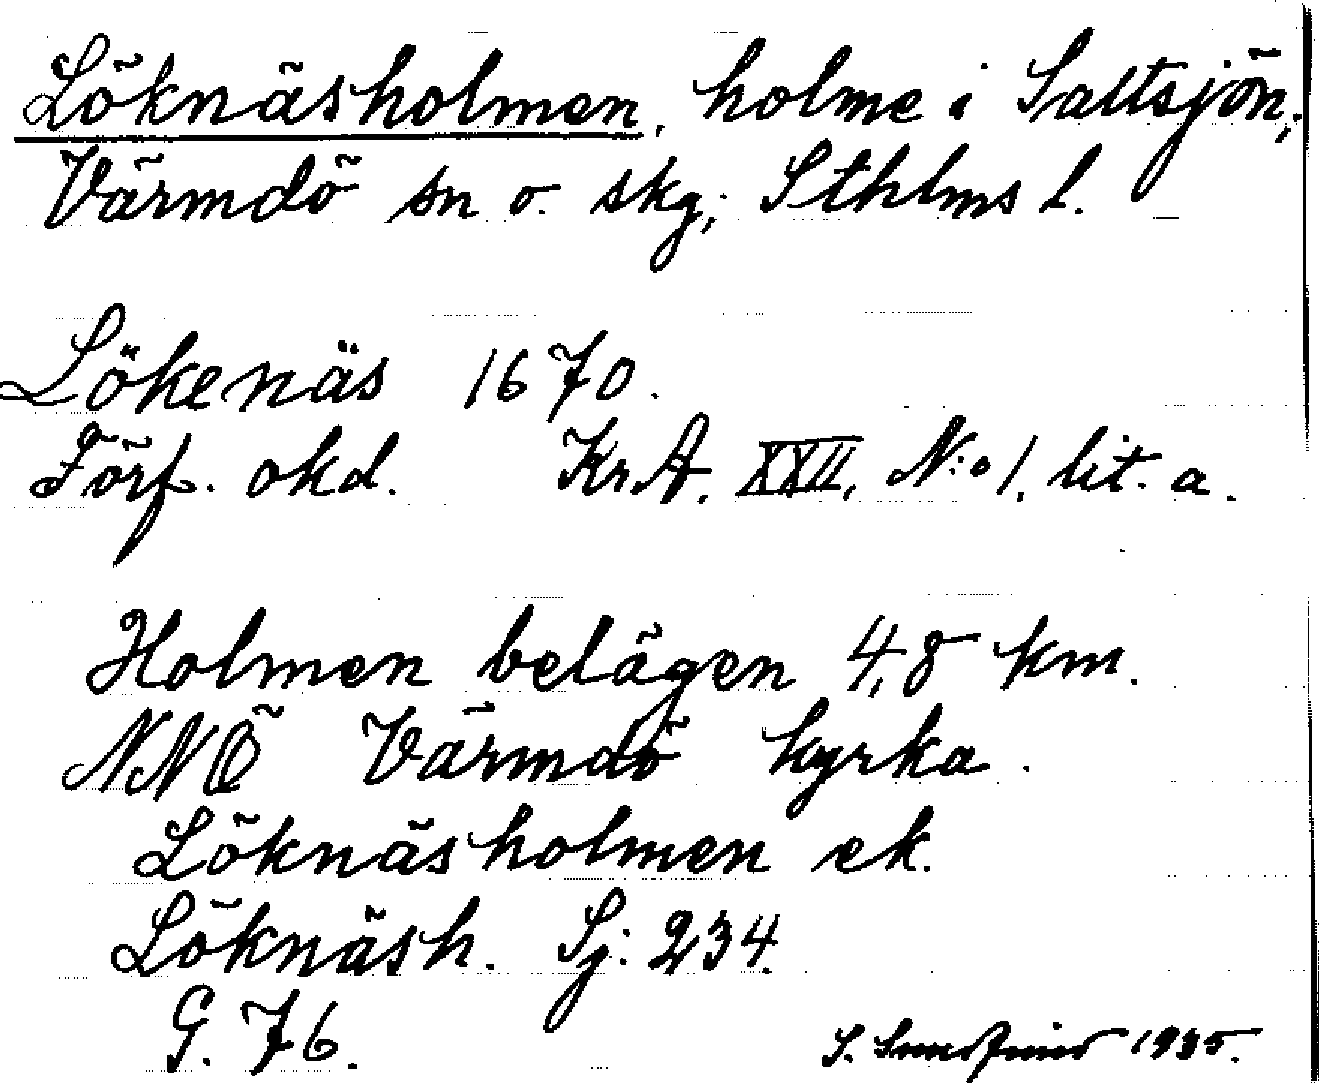 Löknäsholmen, holme i Saltsjön,
Värmdö sn o. skg; Sthlms l.
Lökenäs 1670.
Förf. okd. Kr.A. XXII, N:o 1. lit. a.
Holmen belägen 4,8 km.
NNÖ Värmdö kyrka.
Löknäsholmen ek.
Löknäsh. Sj: 234.
G. 76.
S. 1935.